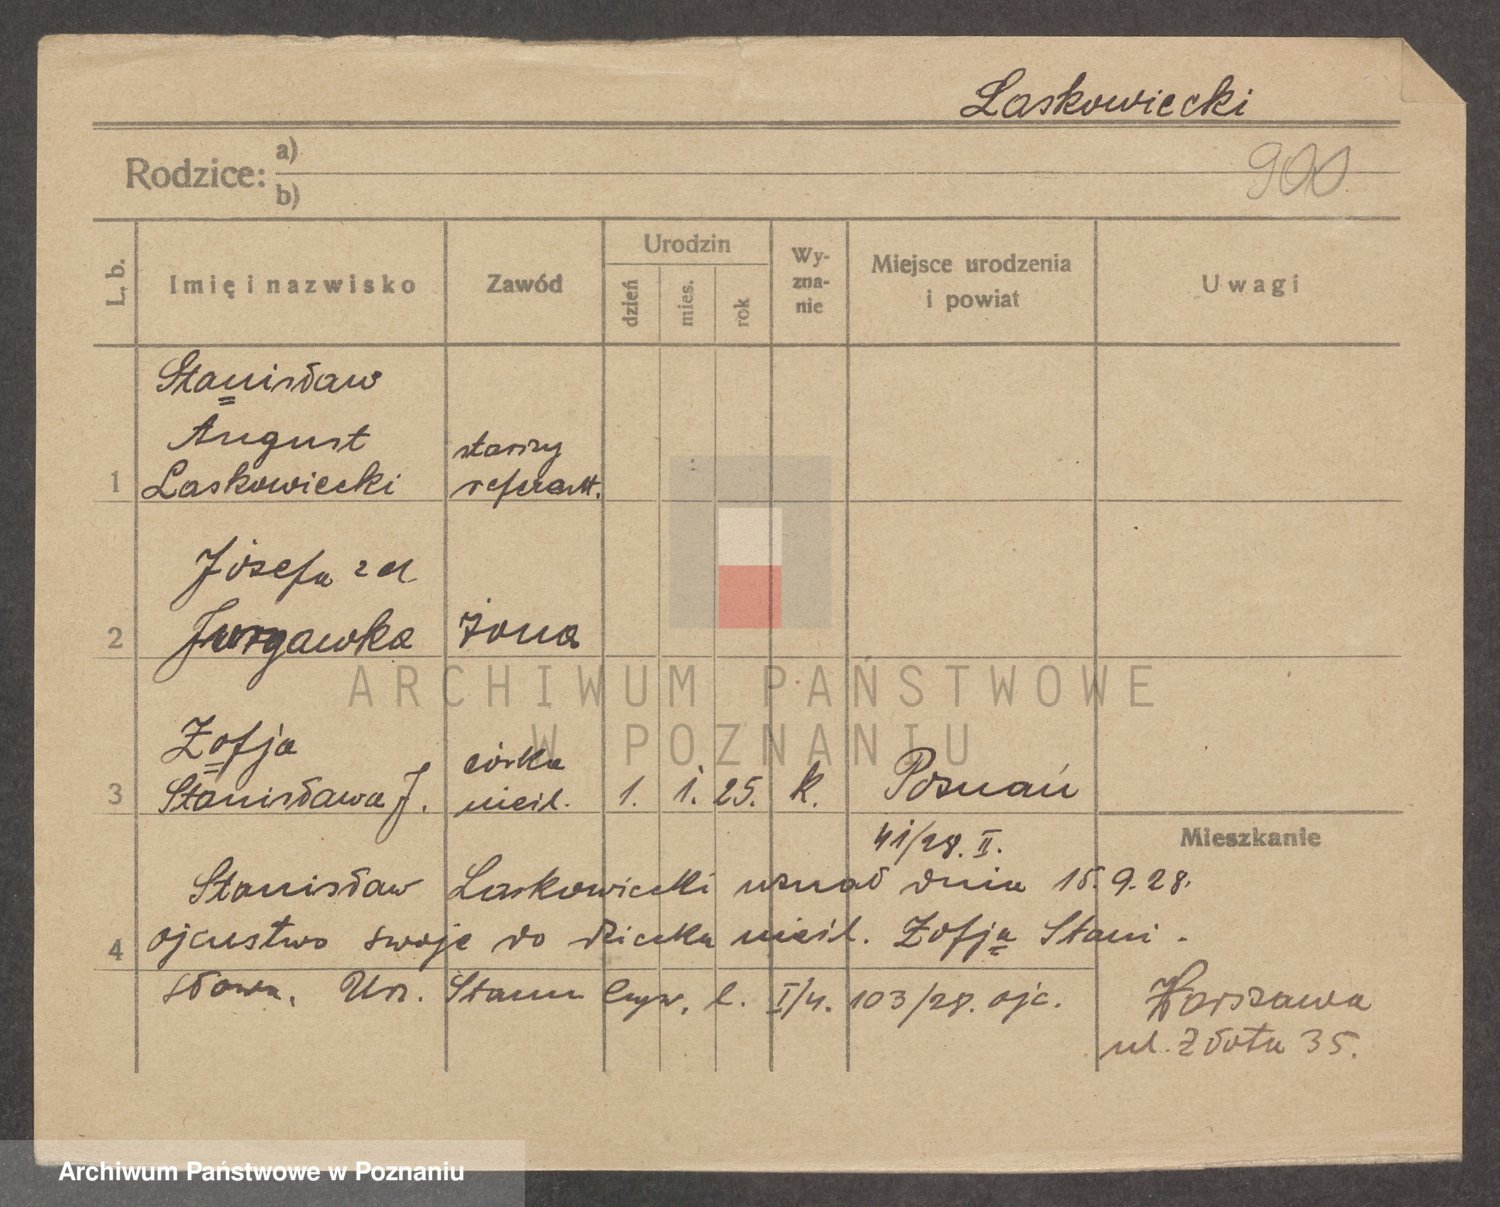 Laskowiecki
900
Rodzice: a)
b)
L. b.
Imię i nazwisko
Zawód
Urodzin
dzień
mies.
rok
Wy-
zna-
nie
Miejsce urodzenia
i powiat
Uwagi
Stanisław
August
Laskowiecki
starszy
referent.
1
Józefa z d.
Jurgawka
żona
2
Zofja
Stanisława J.
córka
nieśl.
1. 1. 25. k. Poznań
3
41/28. II.
Mieszkanie
Stanisław Laskowiecki uznał dnia 15.9.28.
ojcostwo swoje do dziecka nieśl. Zofja Stani-
4
sława. Urz. Stanu Cyw. l. I/4. 103/28. ojc.
Warszawa
ul. Złota 35.
ARCHIWUM PAŃSTWOWE
W POZNANIU
Archiwum Państwowe w Poznaniu